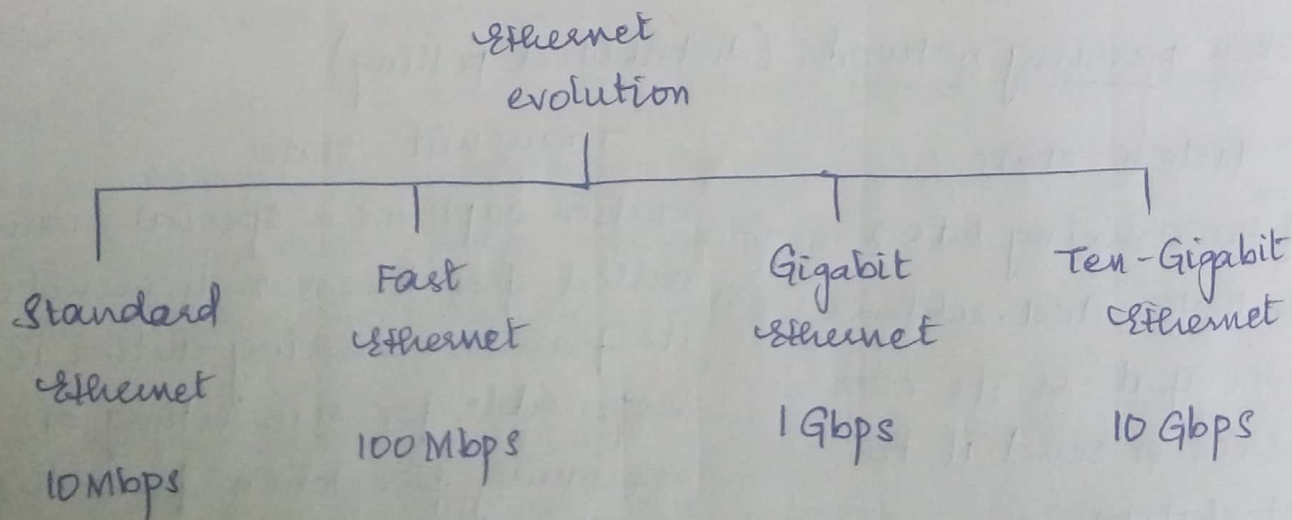 Ethernet
evolution
Standard
Ethernet
10 Mbps
Fast
Ethernet
100 Mbps
Gigabit
Ethernet
1 Gbps
Ten-Gigabit
Ethernet
10 Gbps